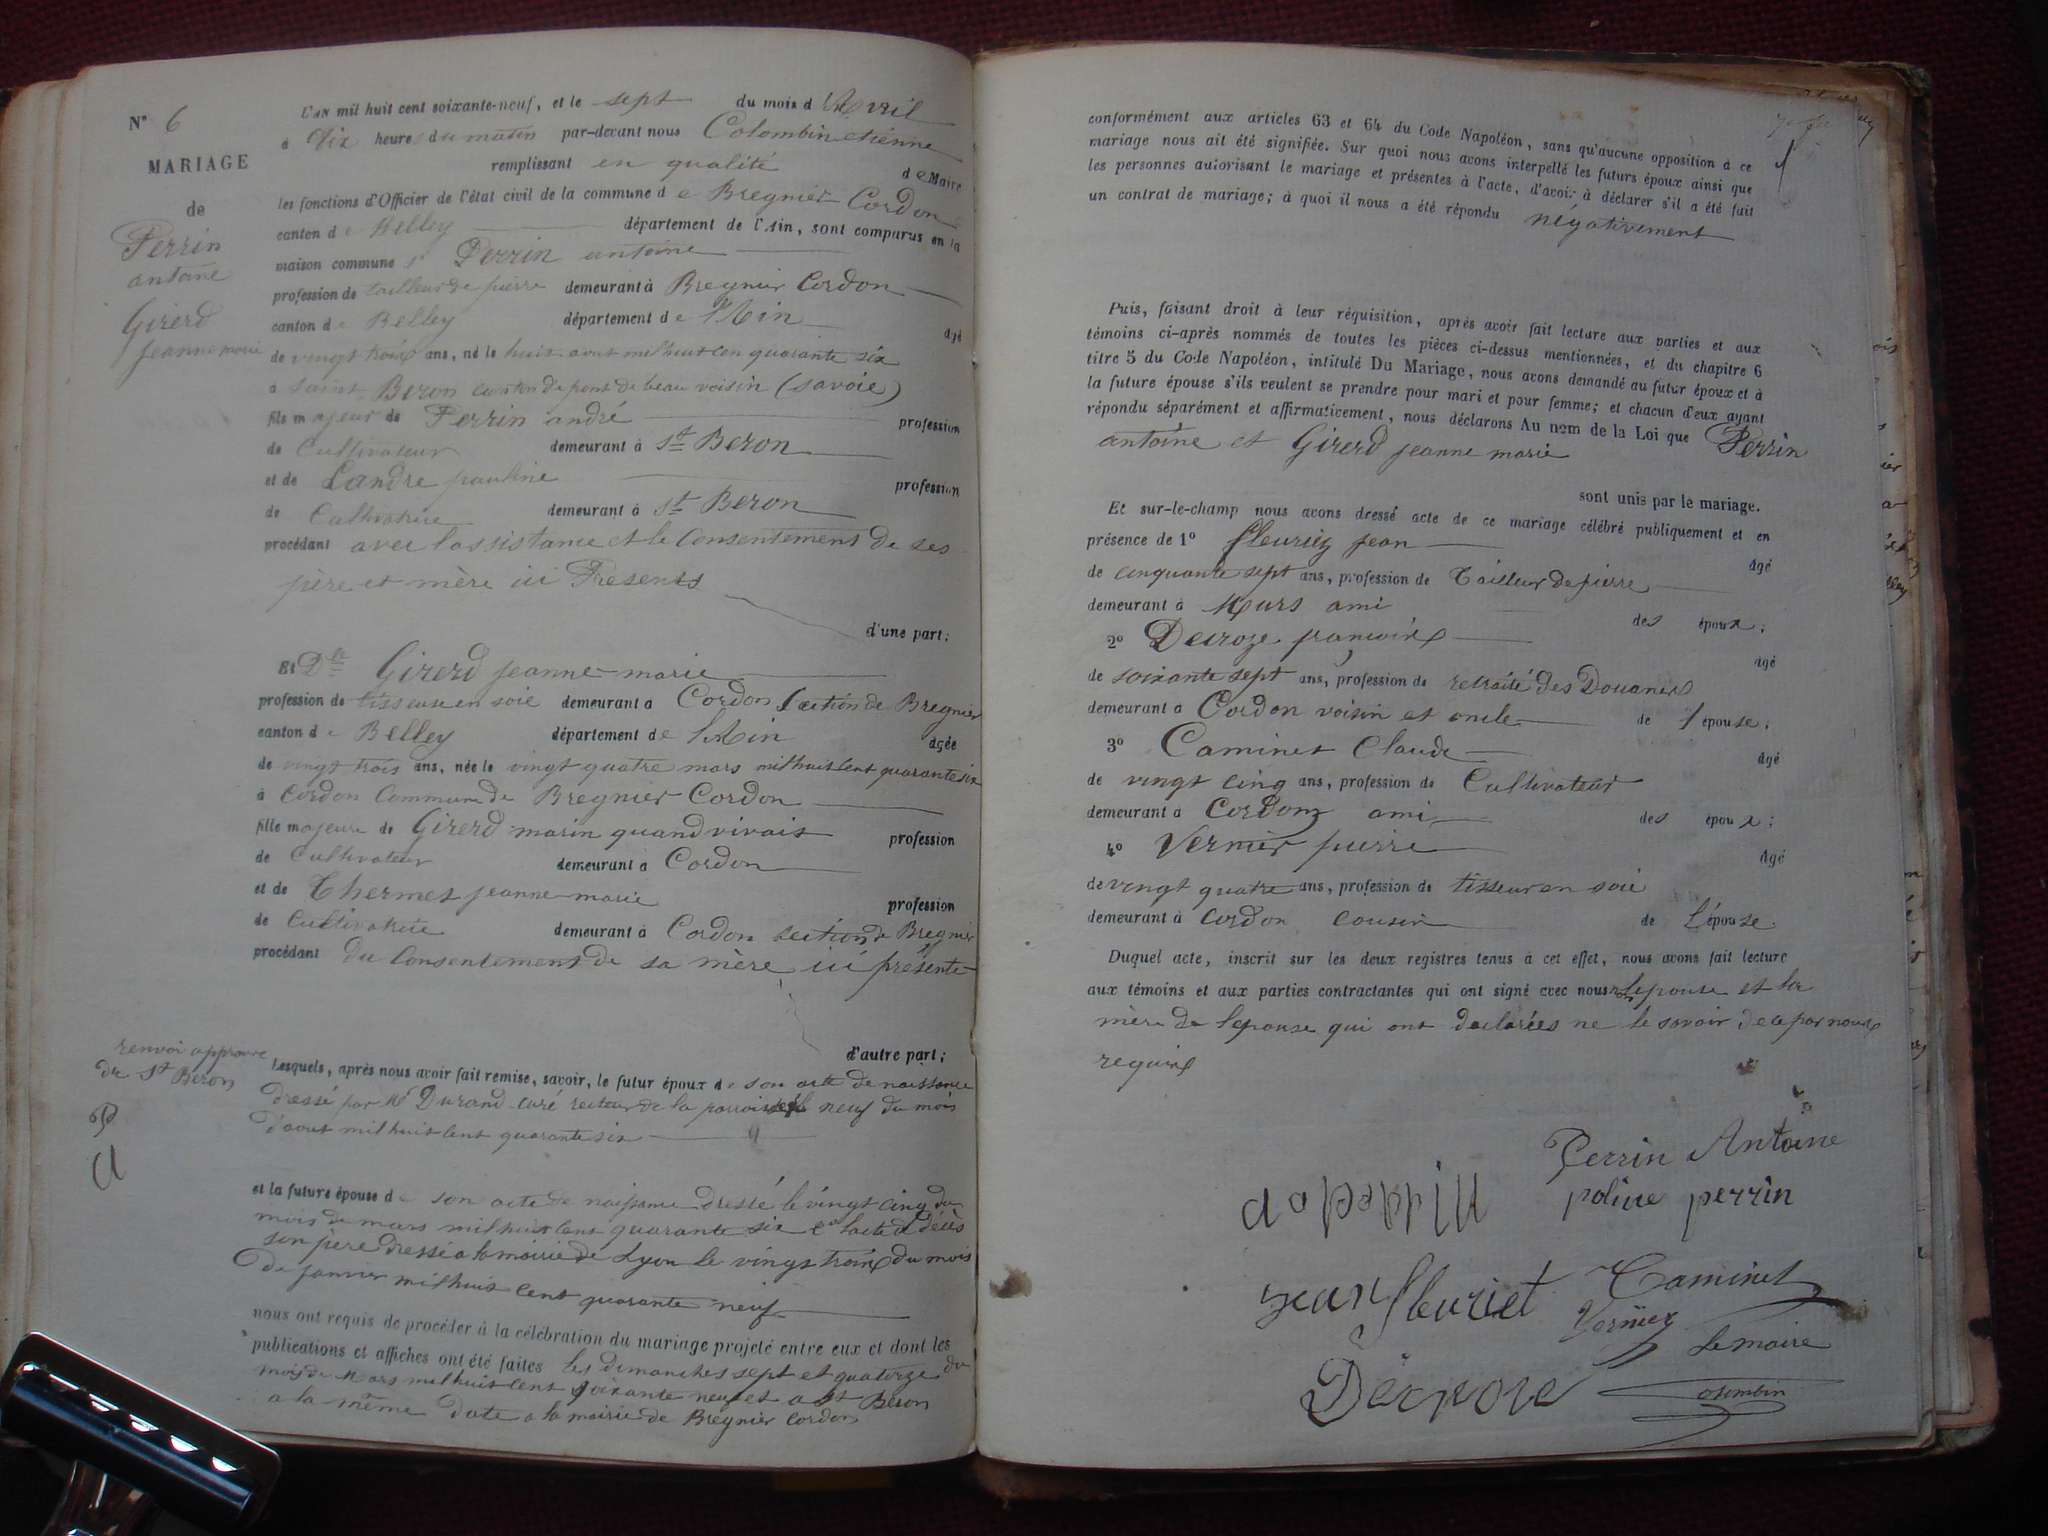 N° 6
MARIAGE
de
Perrin
antoine
Girerd
jeanne marie
L'AN mil huit cent soixante-neuf, et le sept du mois d'Avril
à dix heures du matin par-devant nous Colombin etiénne
remplissant en qualité de Maire
les fonctions d'Officier de l'état civil de la commune de Bregnier Cordon
canton de Belley département de l'Ain, sont comparus en la
maison commune sr Perrin antoine
profession de tailleur de pierre demeurant à Bregnier Cordon
canton de Belley département de l'Ain âgé
de vingt trois ans, né le huit aout mil huit cen quarante six
à saint Beron canton de pont de beau voisin (savoie)
fils majeur de Perrin andré profession
de Cultivateur demeurant à St Beron
et de Landre pauline profession
de Cultivatrice demeurant à St Beron
procédant avec lassistance et le Consentement de ses
père et mère ici Presents
d'une part;
Et Dlle Girerd jeanne-marie
profession de tisseuse en soie demeurant à Cordon section de Bregnier
canton de Belley département de l'Ain âgée
de vingt trois ans, née le vingt quatre mars mil huit cent quarante six
à Cordon Commune de Bregnier Cordon
fille majeure de Girerd marin quand vivait profession
de Cultivateur demeurant à Cordon
et de Thermet jeanne-marie profession
de Cultivatrice demeurant à Cordon section de Bregnier
procédant du Consentement de sa mère ici présente
d'autre part;
renvoi approuvé
de St Beron
Lesquels, après nous avoir fait remise, savoir, le futur époux de son acte de naissance
dressé par Mr Durand curé recteur de la paroisse le neuf du mois
d'aout mil huit cent quarante six
et la future épouse de son acte de naissance dressé le vingt cinq du
mois de mars mil huit cent quarante six et lacte de décès
son père dressé a la mairie de Lyon le vingt trois du mois
de janvier mil huit cent quarante neuf
nous ont requis de procéder à la célébration du mariage projeté entre eux et dont les
publications et affiches ont été faites les dimanches sept et quatorze du
mois de Mars mil huit cent soixante neuf et a St Beron
a la même date a la mairie de Bregnier Cordon
conformément aux articles 63 et 64 du Code Napoléon, sans qu'aucune opposition à ce
mariage nous ait été signifiée. Sur quoi nous avons interpellé les futurs époux ainsi que
les personnes autorisant le mariage et présentes à l'acte, d'avoir à déclarer s'il a été fait
un contrat de mariage; à quoi il nous a été répondu négativement
Puis, faisant droit à leur réquisition, après avoir fait lecture aux parties et aux
témoins ci-après nommés de toutes les pièces ci-dessus mentionnées, et du chapitre 6
titre 5 du Code Napoléon, intitulé Du Mariage, nous avons demandé au futur époux et à
la future épouse s'ils veulent se prendre pour mari et pour femme; et chacun d'eux ayant
répondu séparément et affirmativement, nous déclarons Au nom de la Loi que Perrin
antoine et Girerd jeanne marie
sont unis par le mariage.
Et sur-le-champ nous avons dressé acte de ce mariage célébré publiquement et en
présence de 1° fleuriez jean âgé
de cinquante sept ans, profession de Tailleur de pierre
demeurant à Murs ami des époux;
2° Decroze francoins âgé
de soixante sept ans, profession de retraité des Douanes
demeurant à Cordon voisin et oncle de l'épouse;
3° Caminet Claude âgé
de vingt cinq ans, profession de Cultivateur
demeurant à Cordon ami des époux;
4° Vernier pierre âgé
de vingt quatre ans, profession de tisseur en soie
demeurant à cordon cousin de l'épouse.
Duquel acte, inscrit sur les deux registres tenus à cet effet, nous avons fait lecture
aux témoins et aux parties contractantes qui ont signé avec nous non lepouse et la
mère de lepouse qui ont declarées ne le savoir de ce par nous
requis
Perrin Antoine
poline perrin
jean fleuriet
Caminet
Vernier
Le maire
Decroze
Colombin